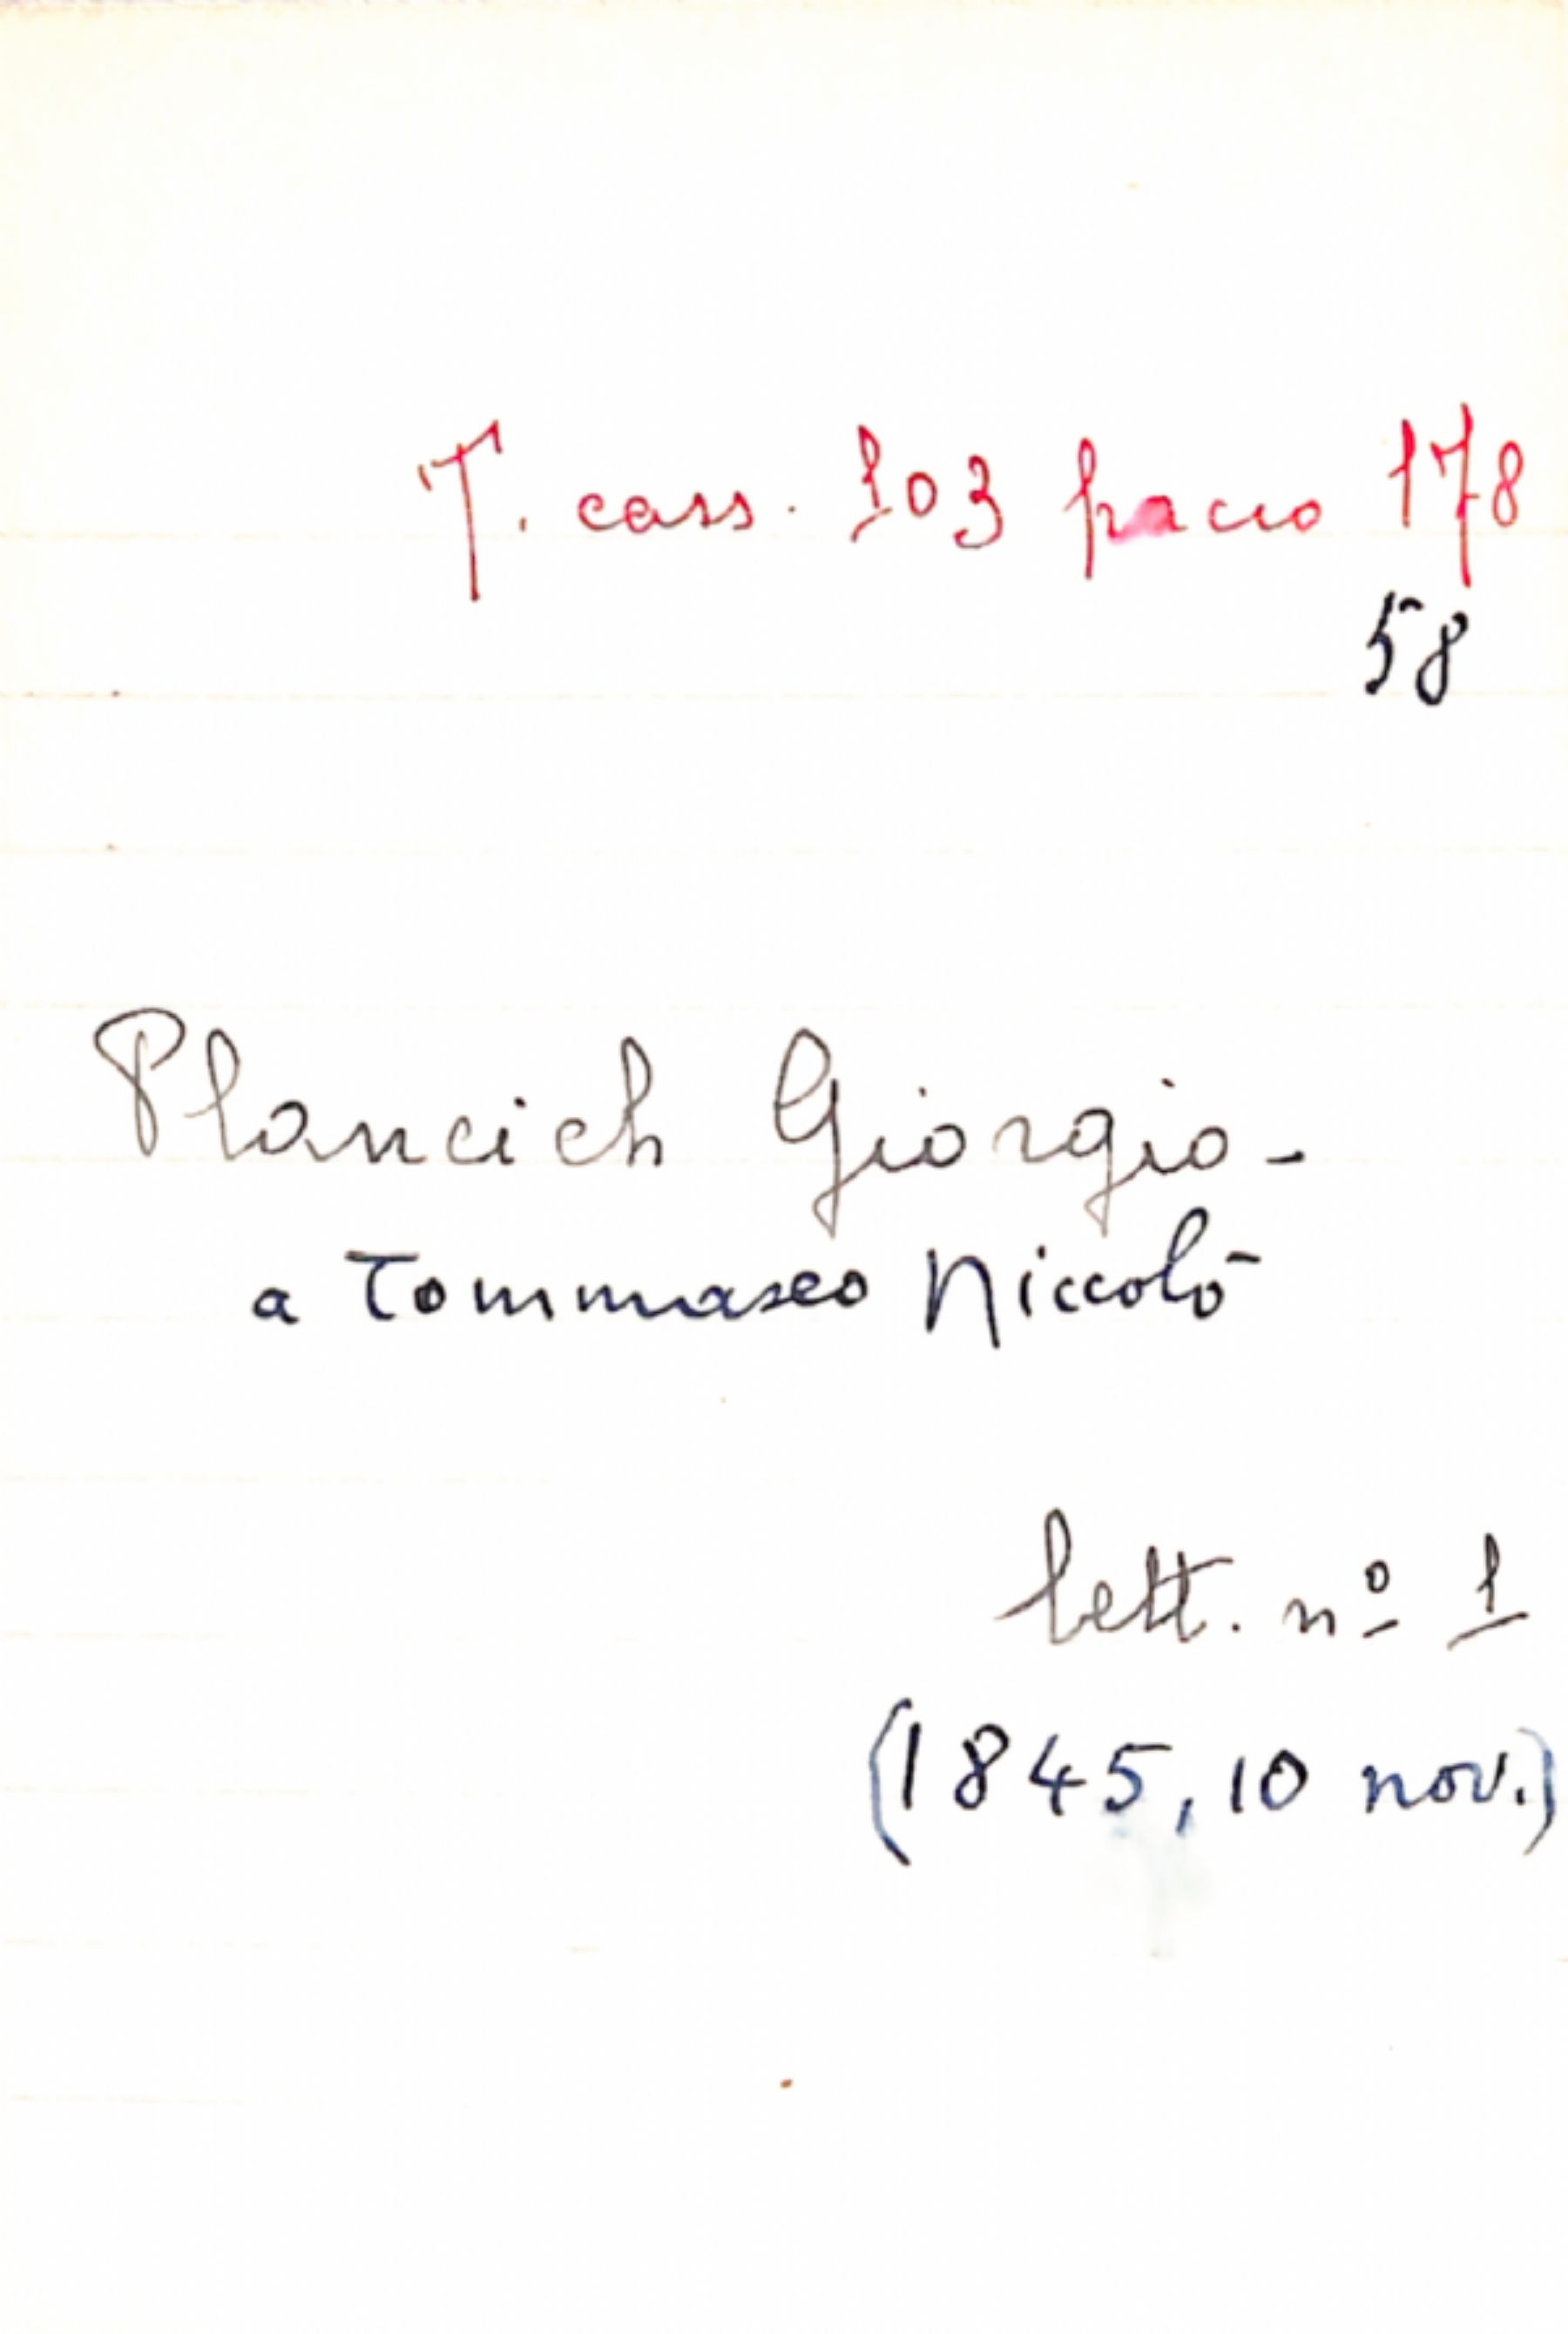 T. cass. 103 pacco 178
58
Plancich Giorgio -
a Tommaseo Niccolò
lett. nº 1
(1845, 10 nov.)